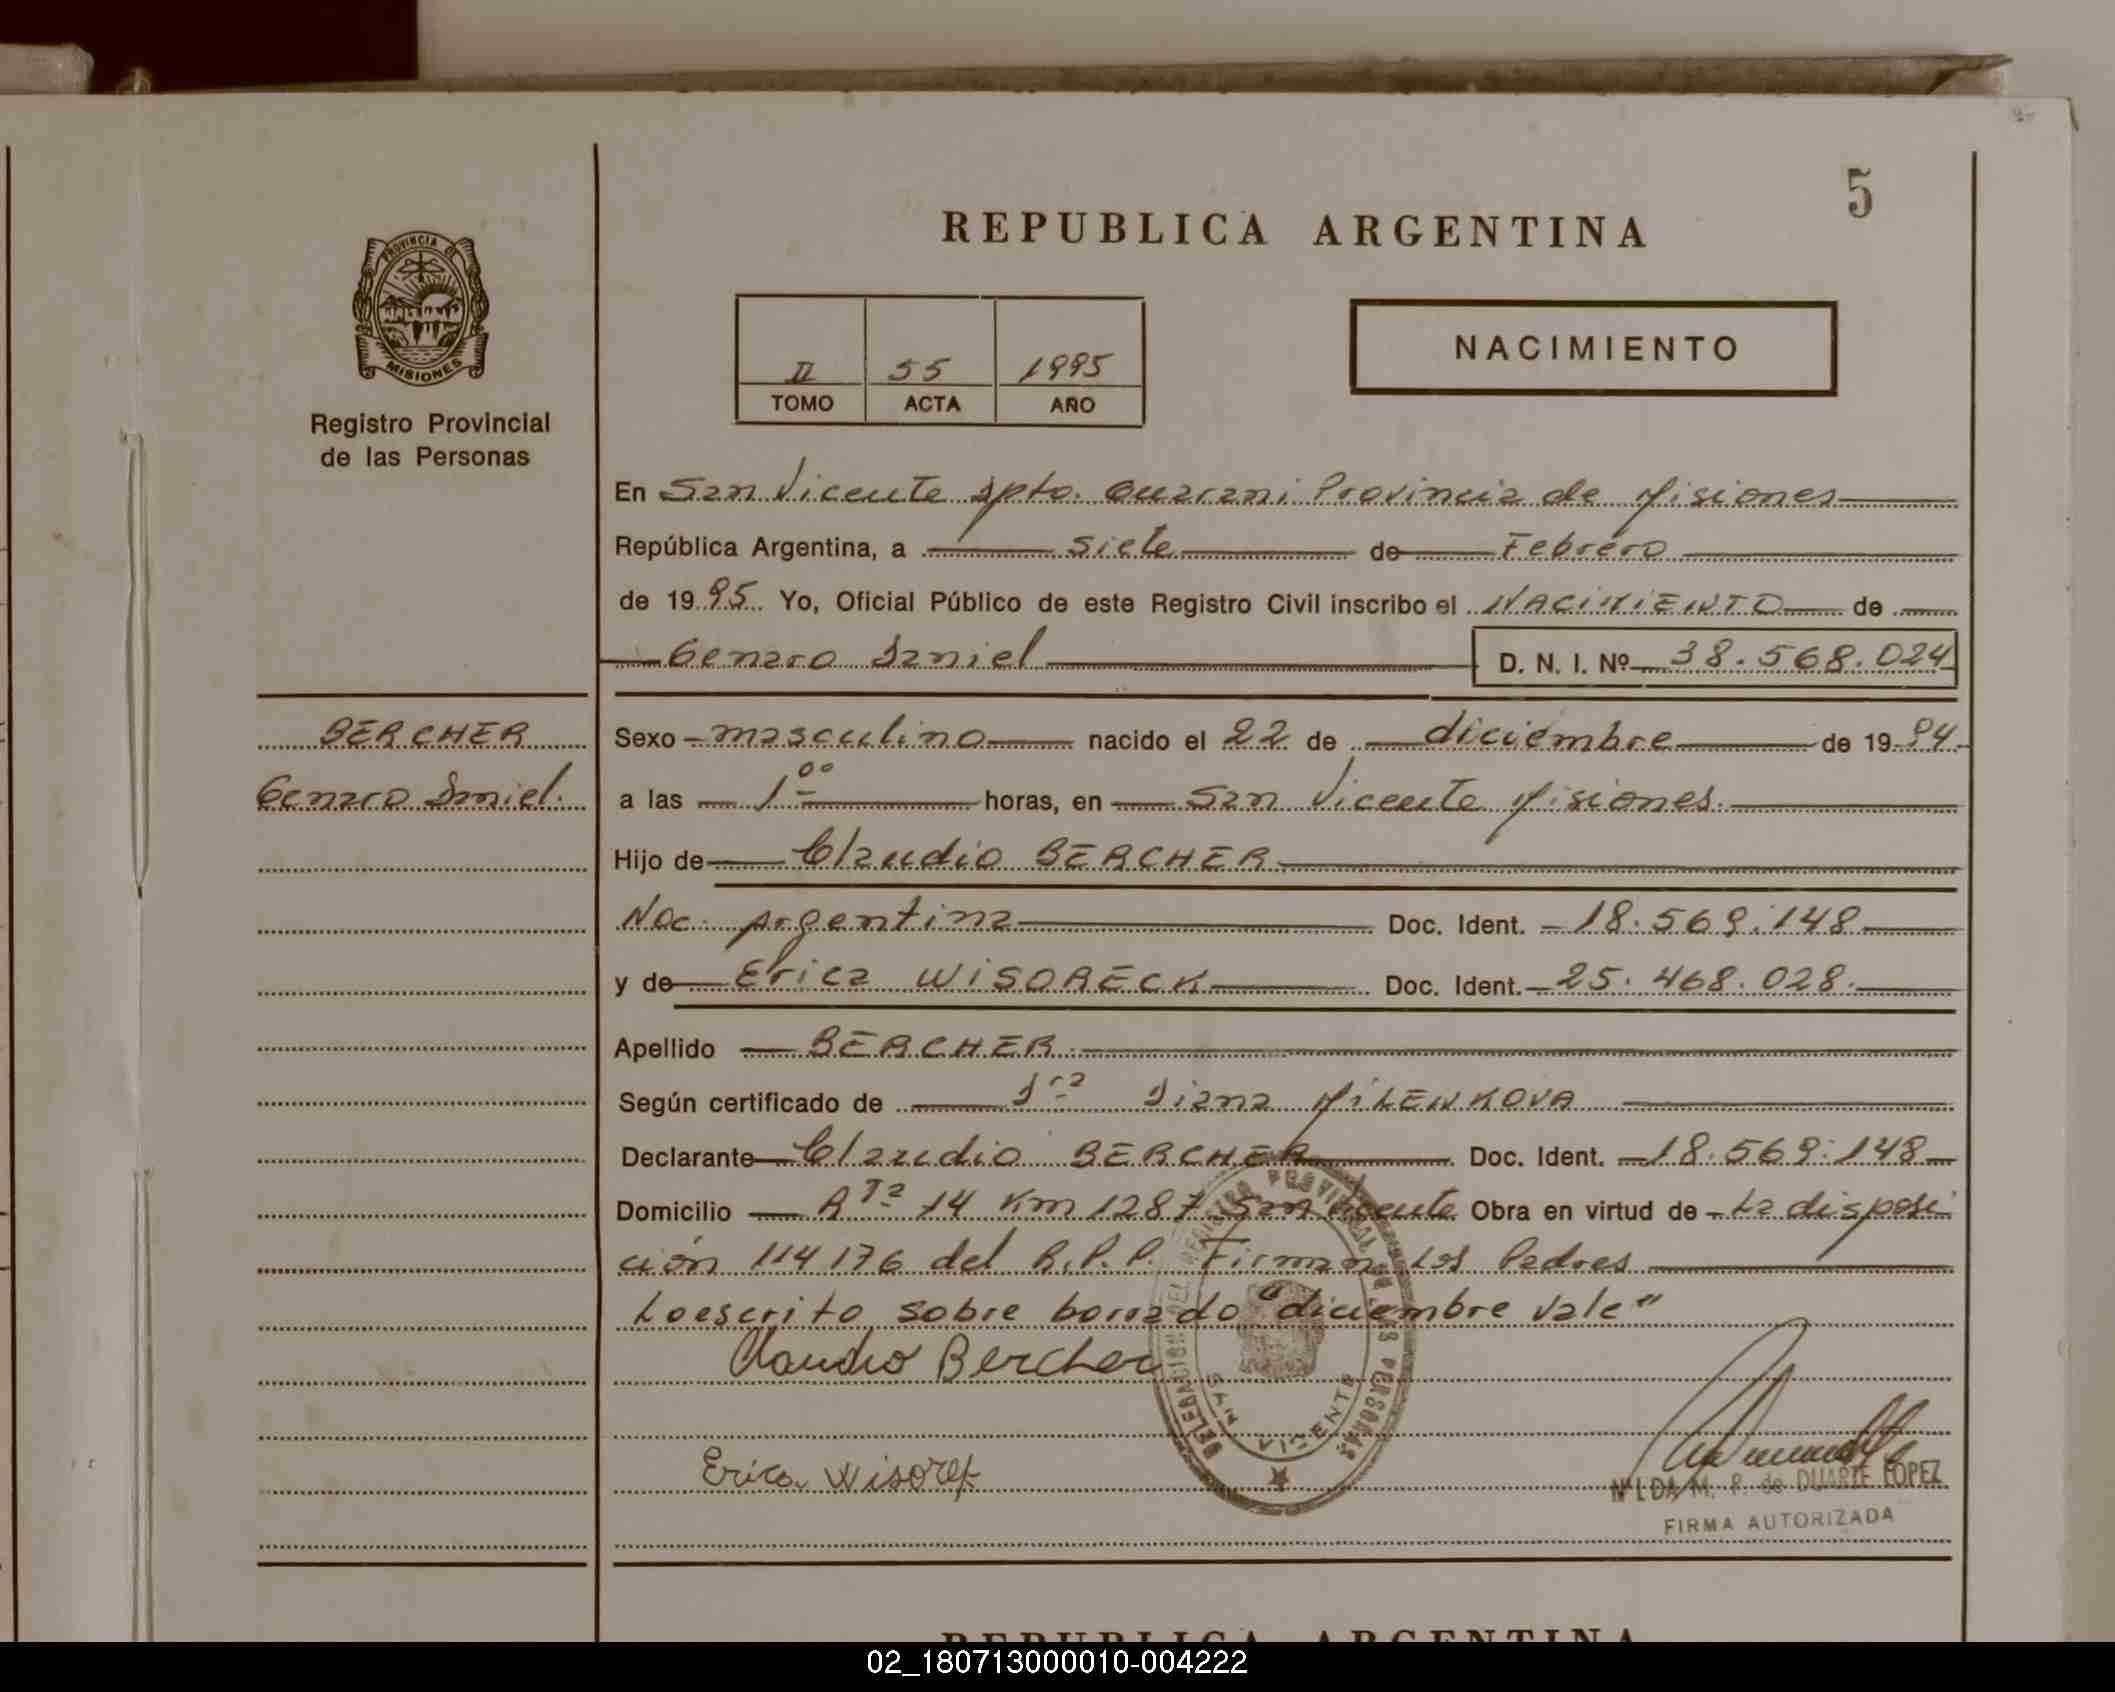 5
REPUBLICA ARGENTINA
PROVINCIA DE
MISIONES
Registro Provincial
de las Personas
II 55 1995
TOMO ACTA AÑO
NACIMIENTO
En San Vicente Dpto. Guarani Provincia de Misiones
República Argentina, a siete de Febrero
de 1995. Yo, Oficial Público de este Registro Civil inscribo el NACIMIENTO de
Genaro Daniel D. N. I. Nº 38.568.024
BERCHER
Genaro Daniel.
Sexo masculino nacido el 22 de diciembre de 1994
a las 1ºº horas, en San Vicente Misiones.
Hijo de Claudio BERCHER
Nac. Argentina Doc. Ident. 18.569.148
y de Erica WISORECK Doc. Ident. 25.468.028.
Apellido BERCHER
Según certificado de Dra Diana MILENKOVA
Declarante Claudio BERCHER Doc. Ident. 18.569.148
Domicilio Rta 14 Km 1287 San Vicente Obra en virtud de La disposi
ción 114176 del R.P.P. Firman Los Padres
Loescrito sobre borrado "diciembre vale"
Claudio Bercher
DELEGACION DEL REGISTRO PROVINCIAL DE LAS PERSONAS
SAN VICENTE
Erica Wisorek
NILDA M. P. de DUARTE LOPEZ
FIRMA AUTORIZADA
REPUBLICA ARGENTINA
02_180713000010-004222